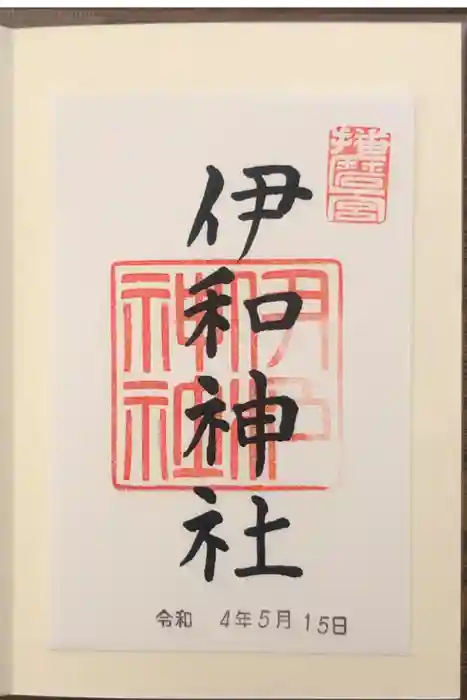 播磨国
伊和神社
伊和
神社
令和 4年5月15日